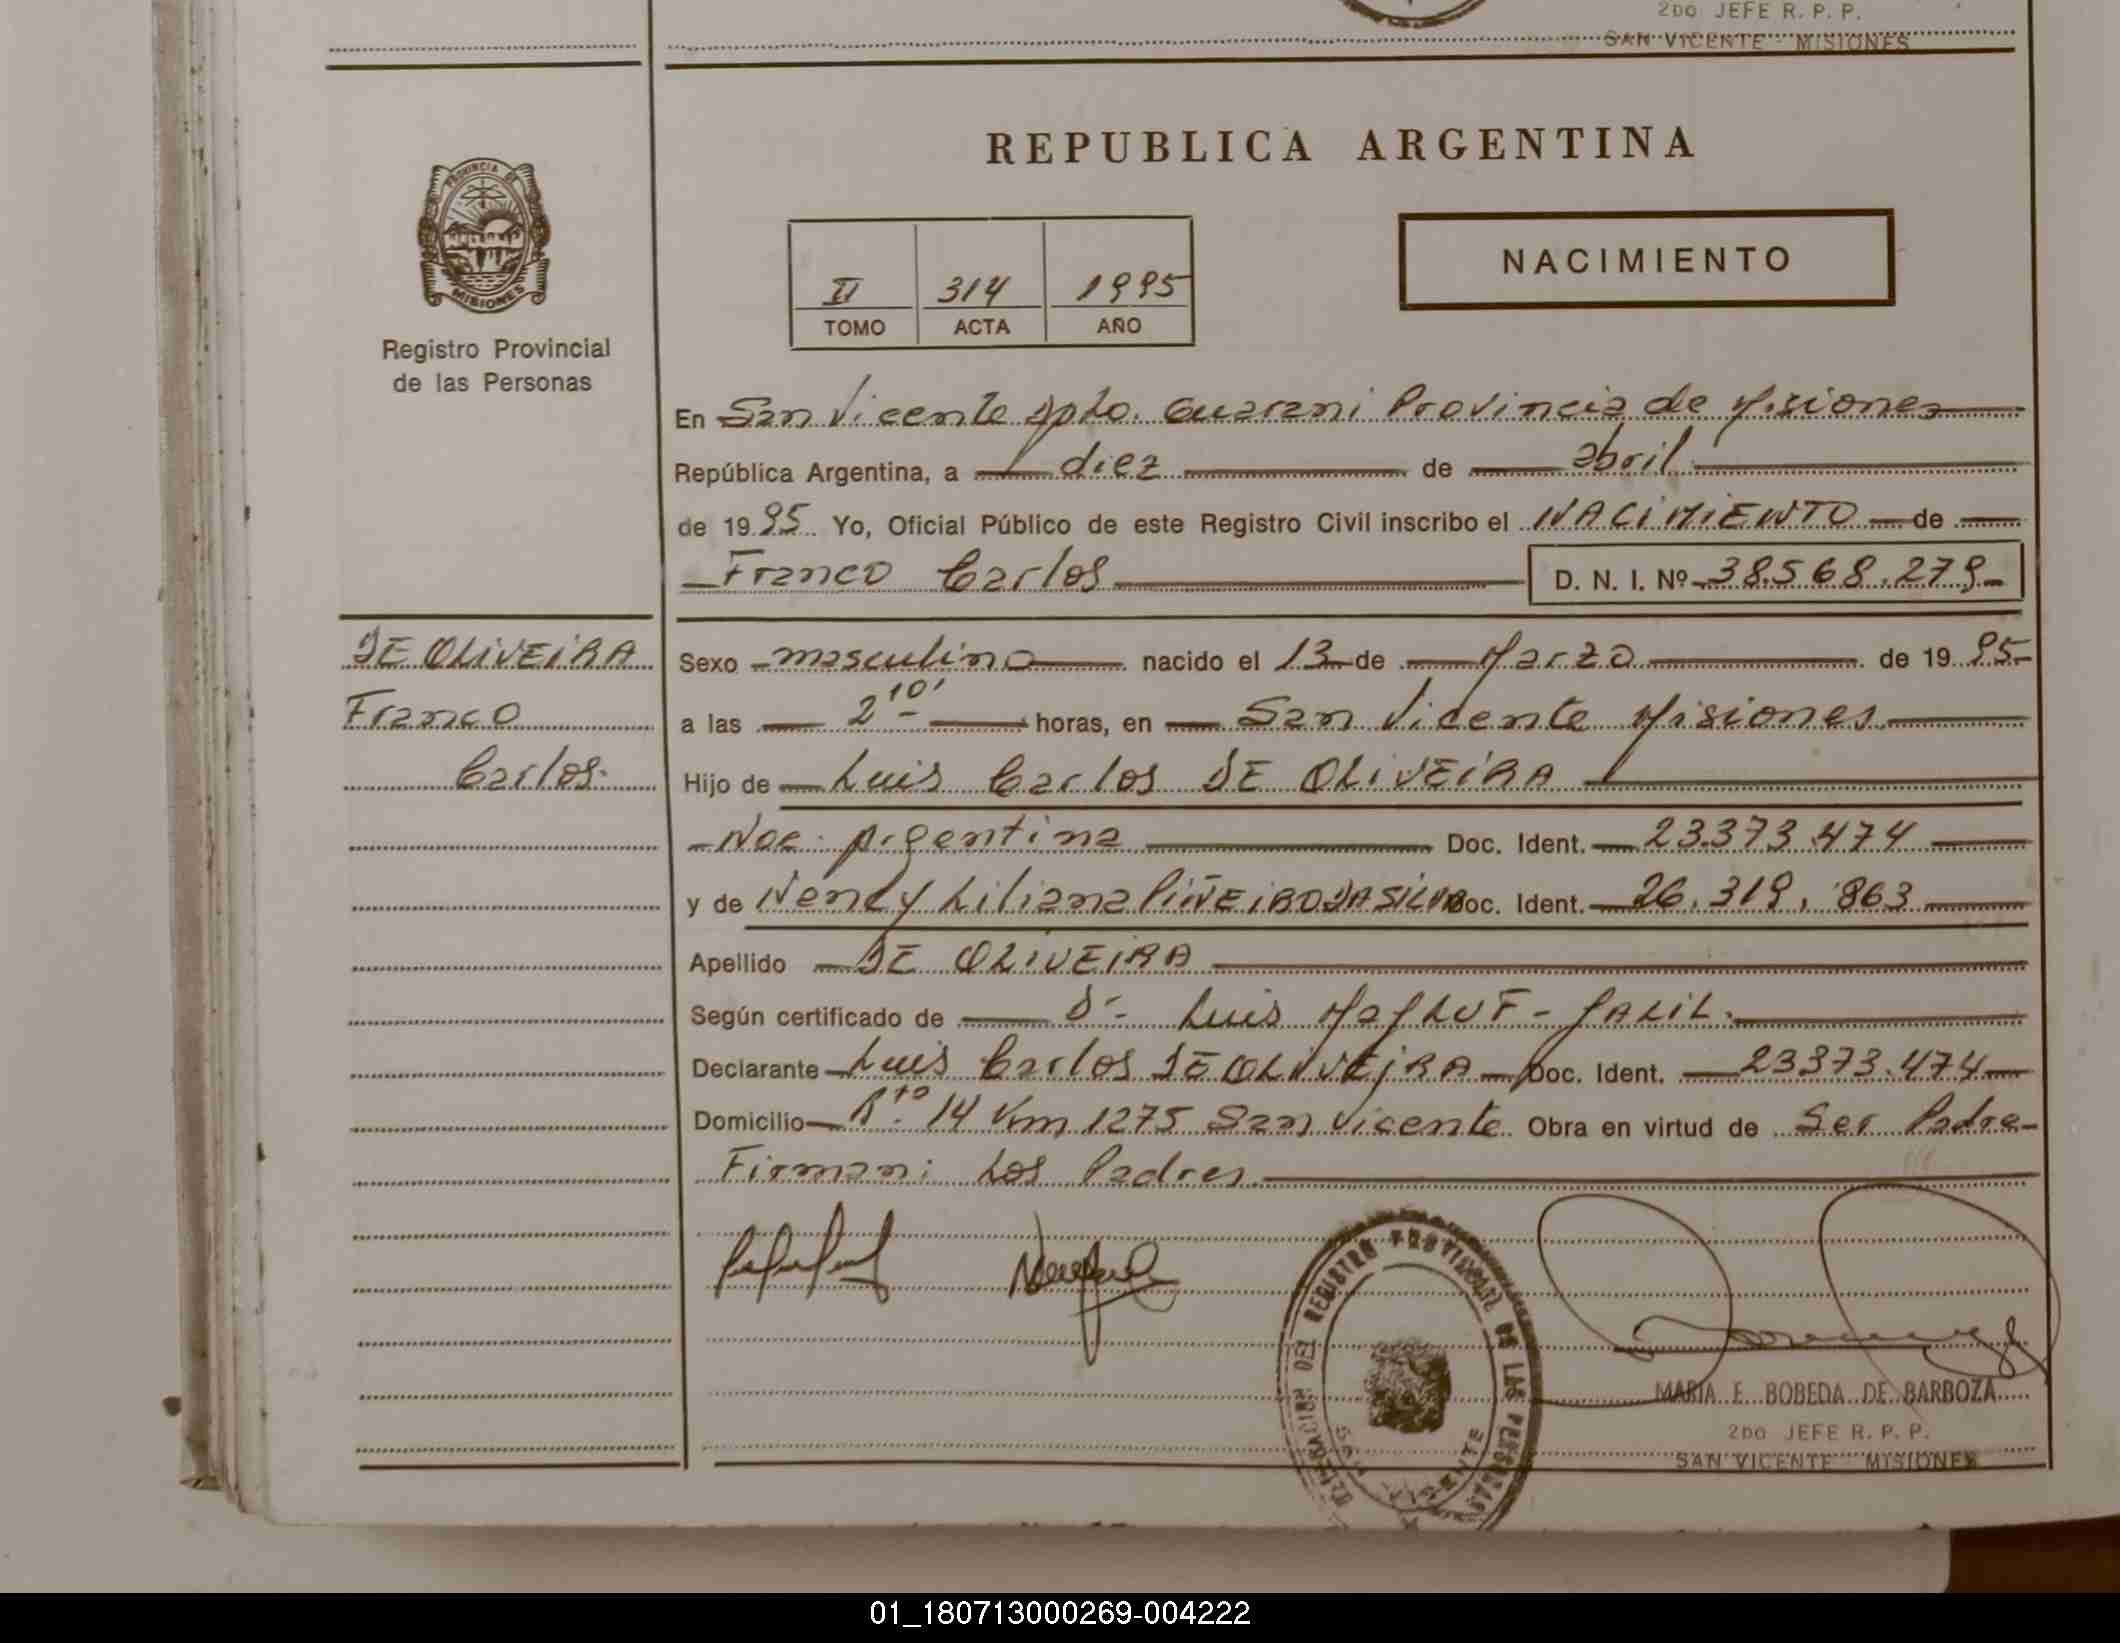 2DO JEFE R. P. P.
SAN VICENTE - MISIONES
PROVINCIA DE
MISIONES
Registro Provincial
de las Personas
REPUBLICA ARGENTINA
II 314 1995
TOMO ACTA AÑO
NACIMIENTO
En San Vicente Dpto. Guarani Provincia de Misiones
República Argentina, a diez de abril
de 1995 Yo, Oficial Público de este Registro Civil inscribo el NACIMIENTO de
Franco Carlos D. N. I. Nº 38.568.279
DE OLIVEIRA
Franco
Carlos
Sexo masculino nacido el 13 de Marzo de 1995
a las 2 10' horas, en San Vicente Misiones
Hijo de Luis Carlos DE OLIVEIRA
Nac. Argentina Doc. Ident. 23.373.474
y de Nency Liliana PIÑEIRO DA SILVA Doc. Ident. 26.319.863
Apellido DE OLIVEIRA
Según certificado de Dr. Luis MAFLUF - JALIL.
Declarante Luis Carlos DE OLIVEIRA Doc. Ident. 23373.474
Domicilio Rta. 14 Km 1275 San Vicente Obra en virtud de Ser Padre
Firman: Los Padres
DEL REGISTRO PROVINCIAL DE LAS PERSONAS
SAN VICENTE
MARIA E. BOBEDA DE BARBOZA
2DO JEFE R. P. P.
SAN VICENTE MISIONES
01_180713000269-004222